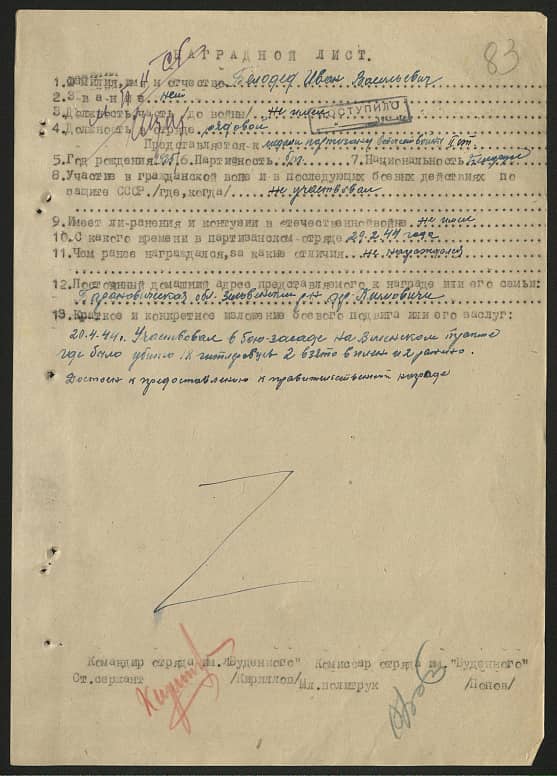 83
НАГРАДНОЙ ЛИСТ.
1. Фамилия, имя и отчество Белодед Иван Васильевич
2. Звание нет
3. Должность /часть до войны/ не имел
ПОСТУПИЛО
4. Должность в отряде рядовой
Представляется к медали партизану II ст.
5. Год рождения 1925 6. Партийность б/п 7. Национальность
8. Участие в гражданской воне и в последующих боевых действиях по
защите СССР /где, когда/ не участвовал
9. Имеет ли ранения и контузии в отечественной войне не имел
10. С какого времени в партизанском отряде 29.2.44 года
11. Чем ранее награждался, за какие отличия не награждался
12. Постоянный домашний адрес представляемого к награде или его семьи:
Барановическая обл. р-н дер.
13. Краткое и конкретное изложение боевого подвига или его заслуг:
20.4.44г. Участвовал в бою-засаде на тракте
где было убито 18 гитлеровцев 2 взято в плен и 2 ранено.
Достоен к предоставлению к правительственной награде
Командир отряда им. "Буденного" Комиссар отряда им. "Буденного"
Ст. сержант /Кириллов/ Мл. политрук /Попов/